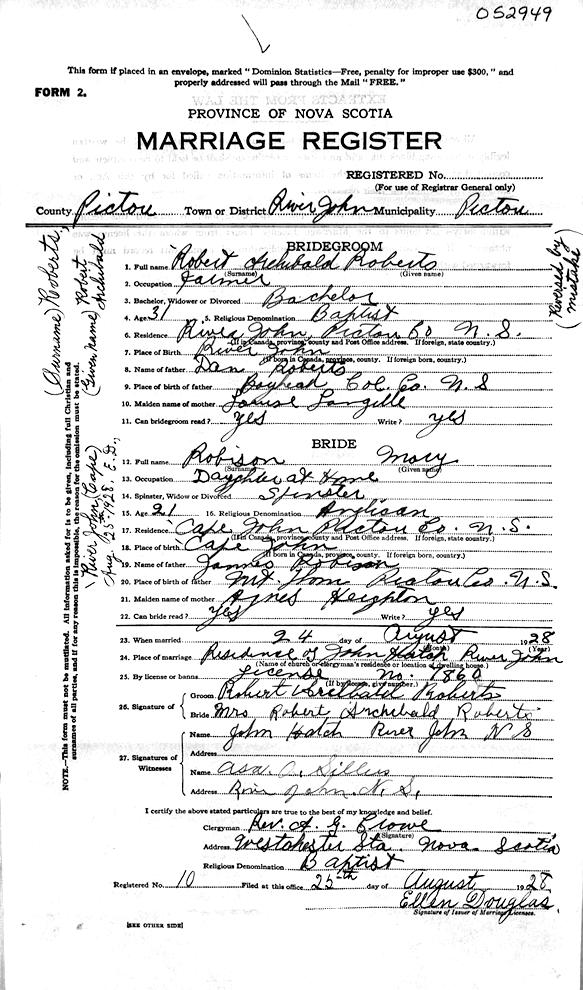 052949
This form if placed in an envelope, marked "Dominion Statistics—Free, penalty for improper use $300," and
properly addressed will pass through the Mail "FREE."
FORM 2.
PROVINCE OF NOVA SCOTIA
MARRIAGE REGISTER
REGISTERED No.
(For use of Registrar General only)
County Pictou Town or District River John Municipality Pictou
BRIDEGROOM
1. Full name Robert Archibald Roberts
(Surname) (Given name)
2. Occupation Farmer
3. Bachelor, Widower or Divorced Bachelor
4. Age 31 5. Religious Denomination Baptist
6. Residence River John, Pictou Co N. S.
(If in Canada, province, county and Post Office address. If foreign, state country.)
7. Place of Birth River John
(If born in Canada, province, county. If foreign born, country.)
8. Name of father Dan Roberts
9. Place of birth of father Bayhead Col. Co. N. S
10. Maiden name of mother Louise Langille
11. Can bridegroom read? yes Write? yes
BRIDE
12. Full name Robison Mary
(Surname) (Given name)
13. Occupation Daughter at Home
14. Spinster, Widow or Divorced Spinster
15. Age 21 16. Religious Denomination Anglican
17. Residence Cape John Pictou Co. N. S.
(If in Canada, province, county and Post Office address. If foreign, state country.)
18. Place of birth Cape John
(If born in Canada, province, county. If foreign born, country.)
19. Name of father James Robison
20. Place of birth of father Mt. Thom Pictou Co. N. S.
21. Maiden name of mother Agnes Heighton
22. Can bride read? yes Write? yes
23. When married 24 day of August 1928
(Month) (Year)
24. Place of marriage Residence of John Hatch River John
(Name of church or clergyman's residence or location of dwelling house.)
25. By license or banns License No. 1860
(If by license, give number.)
26. Signature of
Groom Robert Archibald Roberts
Bride Mrs Robert Archibald Roberts
27. Signatures of Witnesses
Name John Hatch River John N S
Address
Name Asa
Address River John. N. S.
I certify the above stated particulars are true to the best of my knowledge and belief.
Clergyman Rev. A. G. Crowe
(Signature)
Address Westchester Sta. Nova Scotia
Religious Denomination Baptist
Registered No. 10 Filed at this office 25th day of August 1928
Ellen Douglas
Signature of Issuer of Marriage Licenses.
[SEE OTHER SIDE]
(Surname) Roberts,
(Given name) Robert Archibald
(Reversed by mistake)
River John (Cape)
Aug. 25th 1928. E. D.,
NOTE.—This form must not be mutilated. All information asked for is to be given, including full Christian and
surnames of all parties, and if for any reason this is impossible, the reason for the omission must be stated.